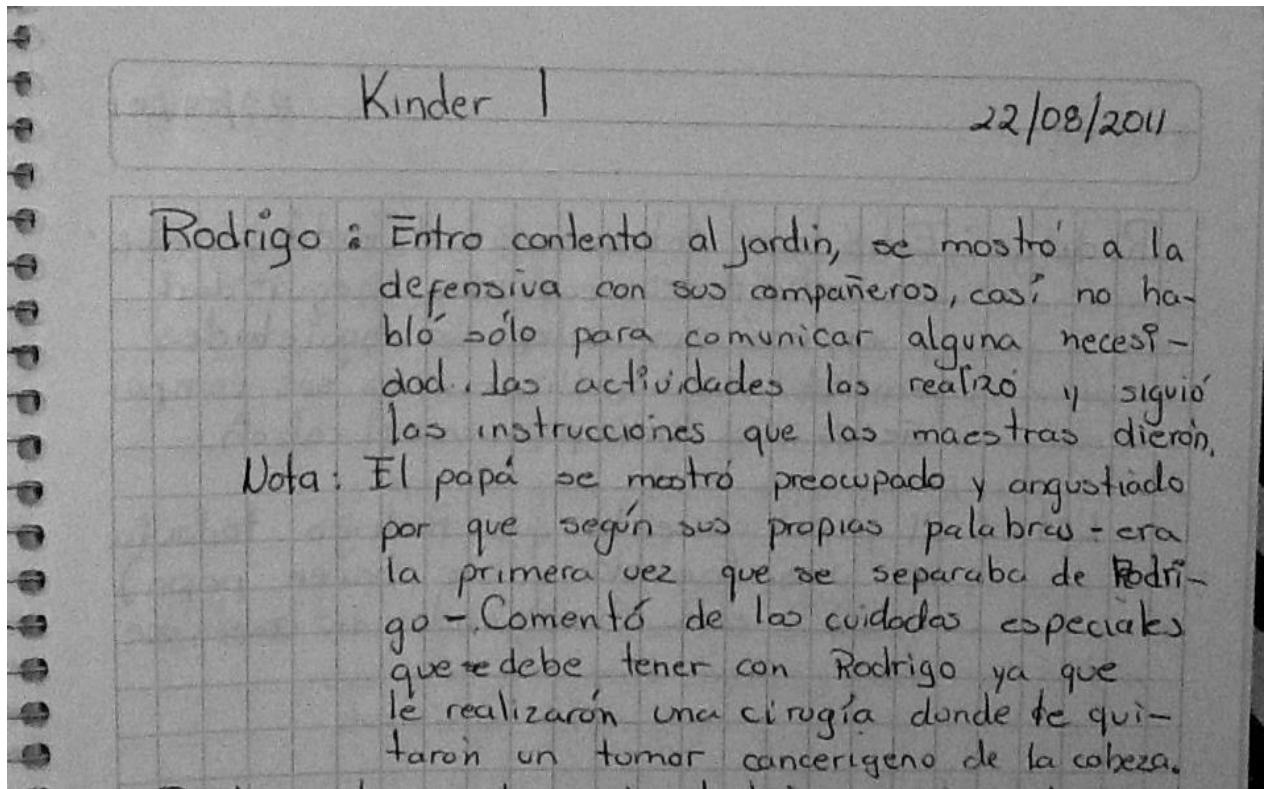 Kinder 1
22/08/2011
Rodrigo: Entro contento al jardin, se mostró a la
defensiva con sus compañeros, casi no ha-
bló sólo para comunicar alguna necesi-
dad. Las actividades las realizó y siguió
las instrucciones que las maestras dierón.
Nota: El papá se mostró preocupado y angustiado
por que según sus propias palabras - era
la primera vez que se separaba de Rodri-
go -. Comentó de los cuidados especiales
que se debe tener con Rodrigo ya que
le realizarón una cirugía donde le qui-
tarón un tumor cancerigeno de la cabeza.